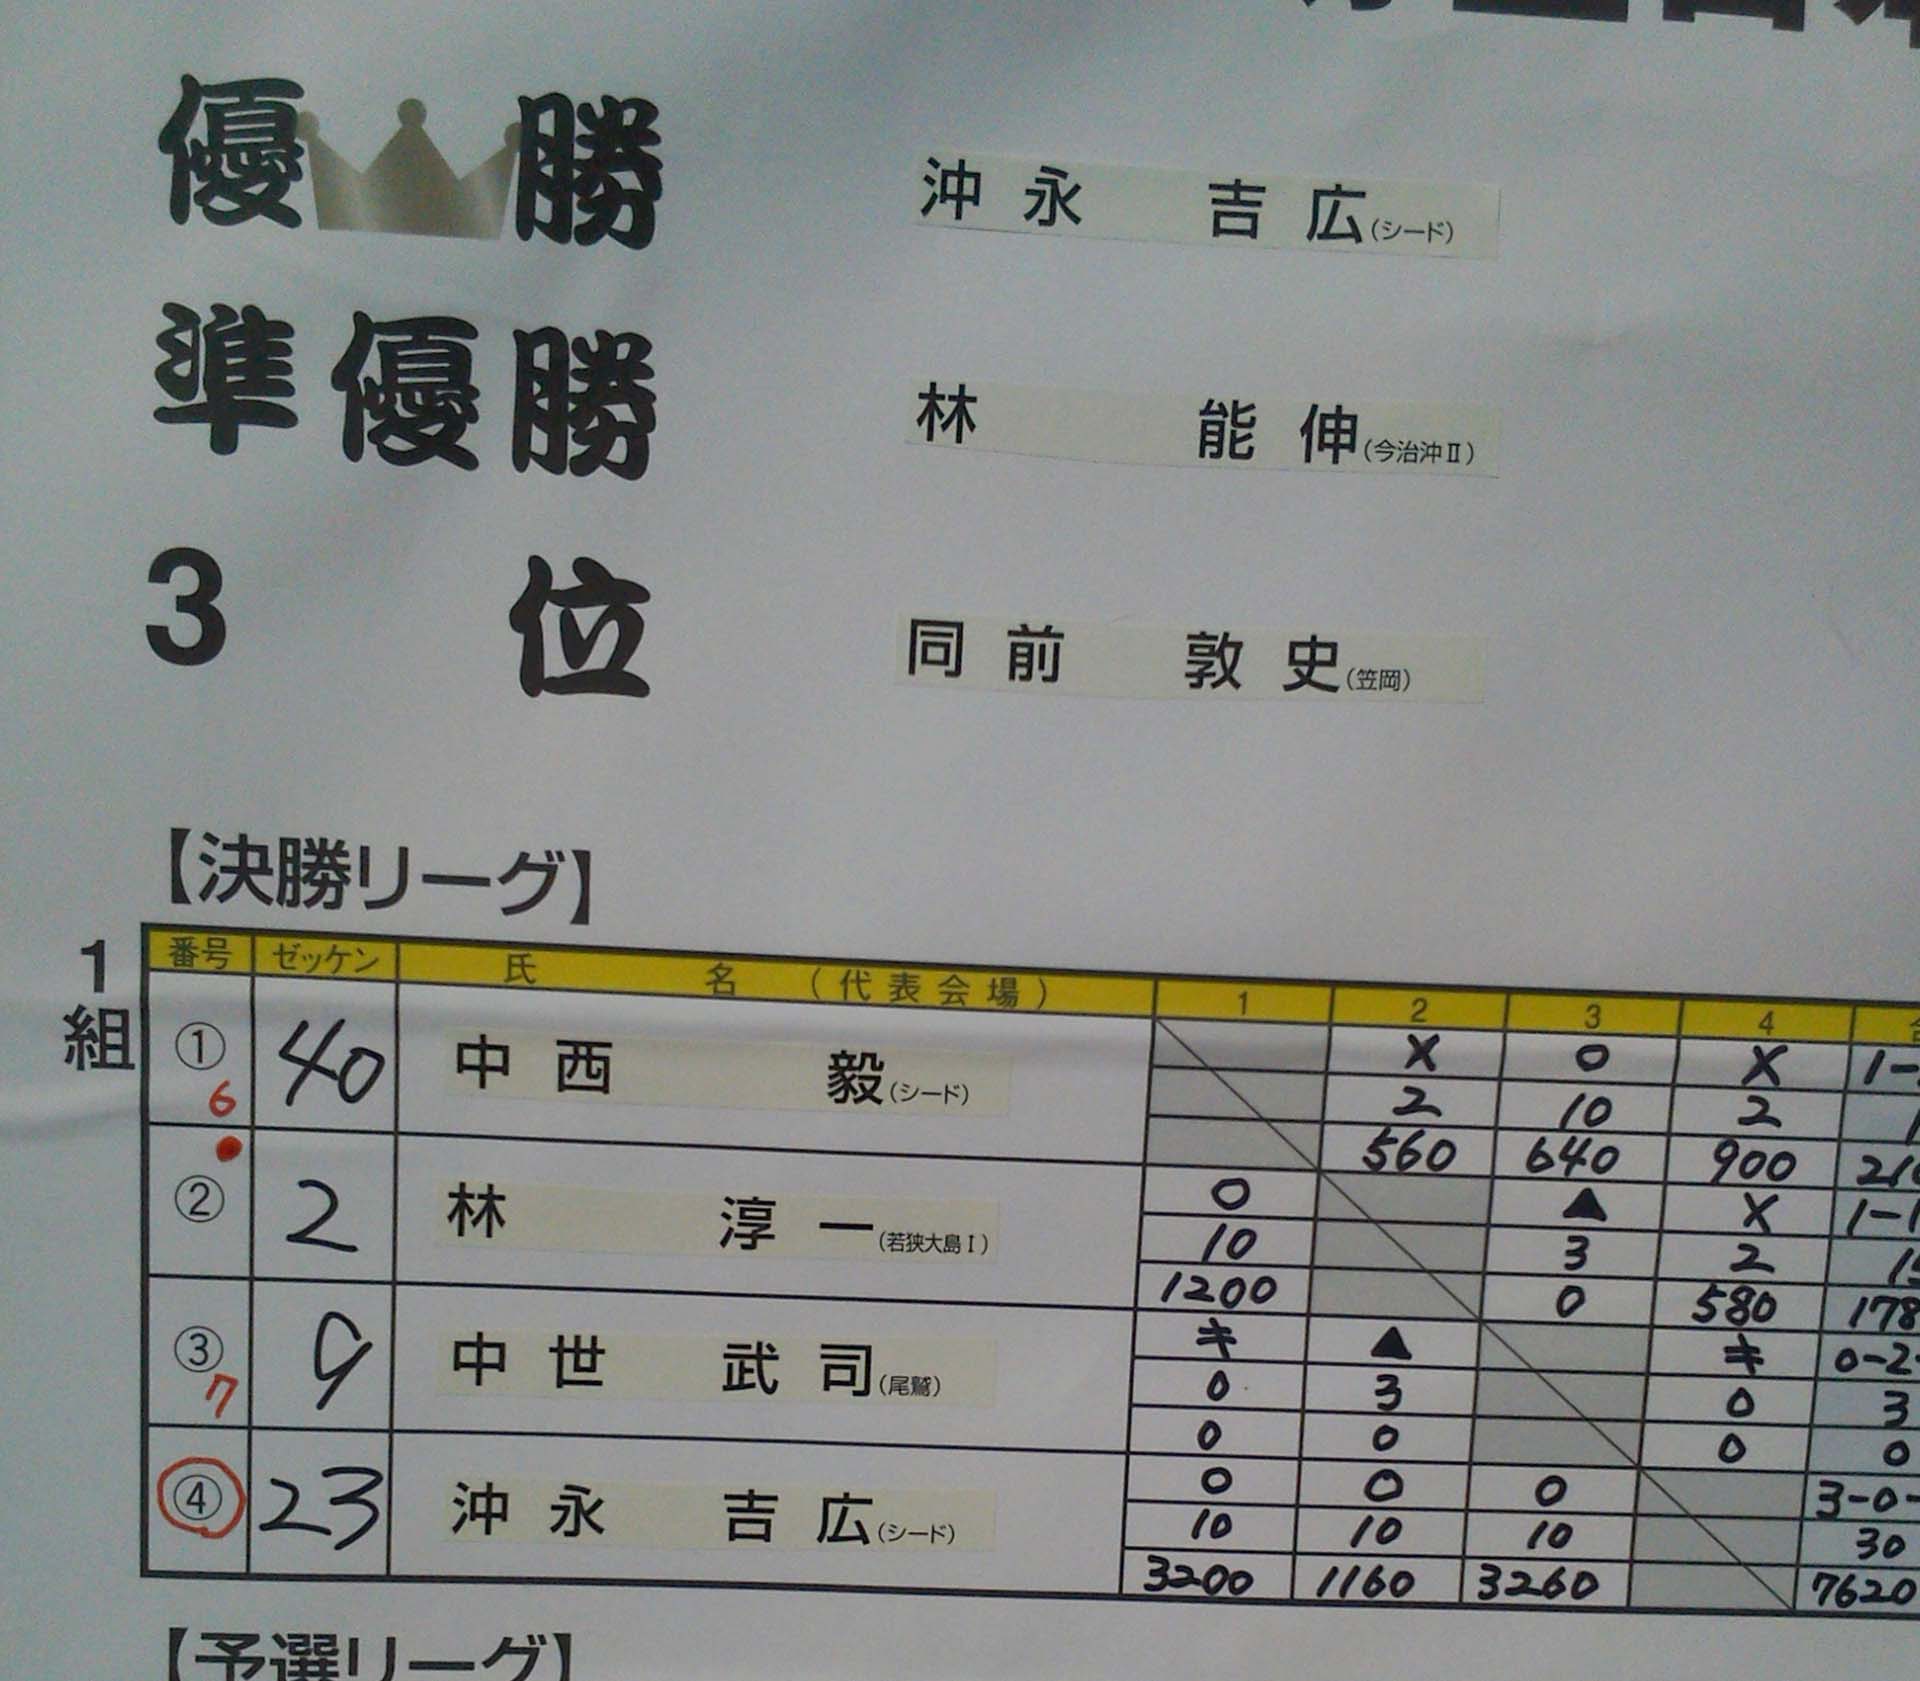 優勝 沖永 吉広(シード)
準優勝 林 能伸(今治沖Ⅱ)
3位 同前 敦史(笠岡)
【決勝リーグ】
1組
番号 ゼッケン 氏 名 (代表会場) 1 2 3 4
① 6 40 中西 毅(シード)
X O X
2 10 2
560 640 900
② 2 林 淳一(若狭大島Ⅰ)
O ▲ X 1-1
10 3 2
1200 0 580
③ 7 9 中世 武司(尾鷲)
キ ▲ キ 0-2-
0 3 0 3
0 0 0 0
④ 23 沖永 吉広(シード)
O O O 3-0-
10 10 10 30
3200 1160 3260 7620
【予選リーグ】